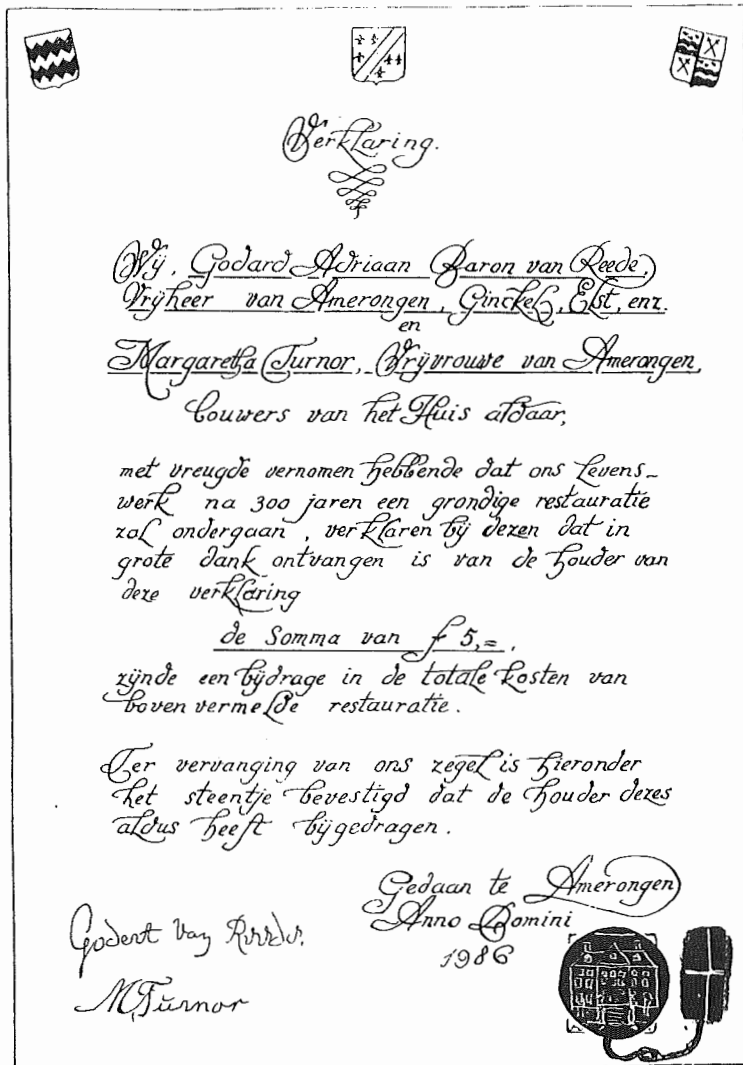 Verklaring.
Wij, Godard Adriaan Baron van Reede,
Vrijheer van Amerongen, Ginckel, Elst, enz.
en
Margaretha Turnor, Vrijvrouwe van Amerongen,
bouwers van het Huis aldaar,
met vreugde vernomen hebbende dat ons levens-
werk na 300 jaren een grondige restauratie
zal ondergaan, verklaren bij dezen dat in
grote dank ontvangen is van de houder van
deze verklaring
de Somma van f 5,=.
zijnde een bijdrage in de totale kosten van
bovenvermelde restauratie.
Ter vervanging van ons zegel is hieronder
het steentje bevestigd dat de houder dezes
aldus heeft bijgedragen.
Gedaan te Amerongen
Anno Domini
1986
Godert van
M Turnor